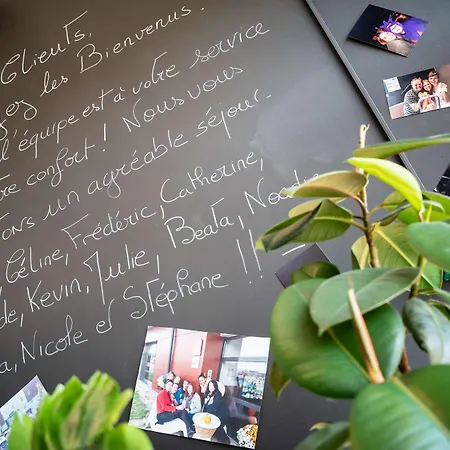 Clients,
les Bienvenus.
l'équipe est à votre service
confort ! Nous vous
un agréable séjour.
Céline, Frédéric, Catherine,
Kevin, Julie, Beata,
Nicole et Stéphane !!